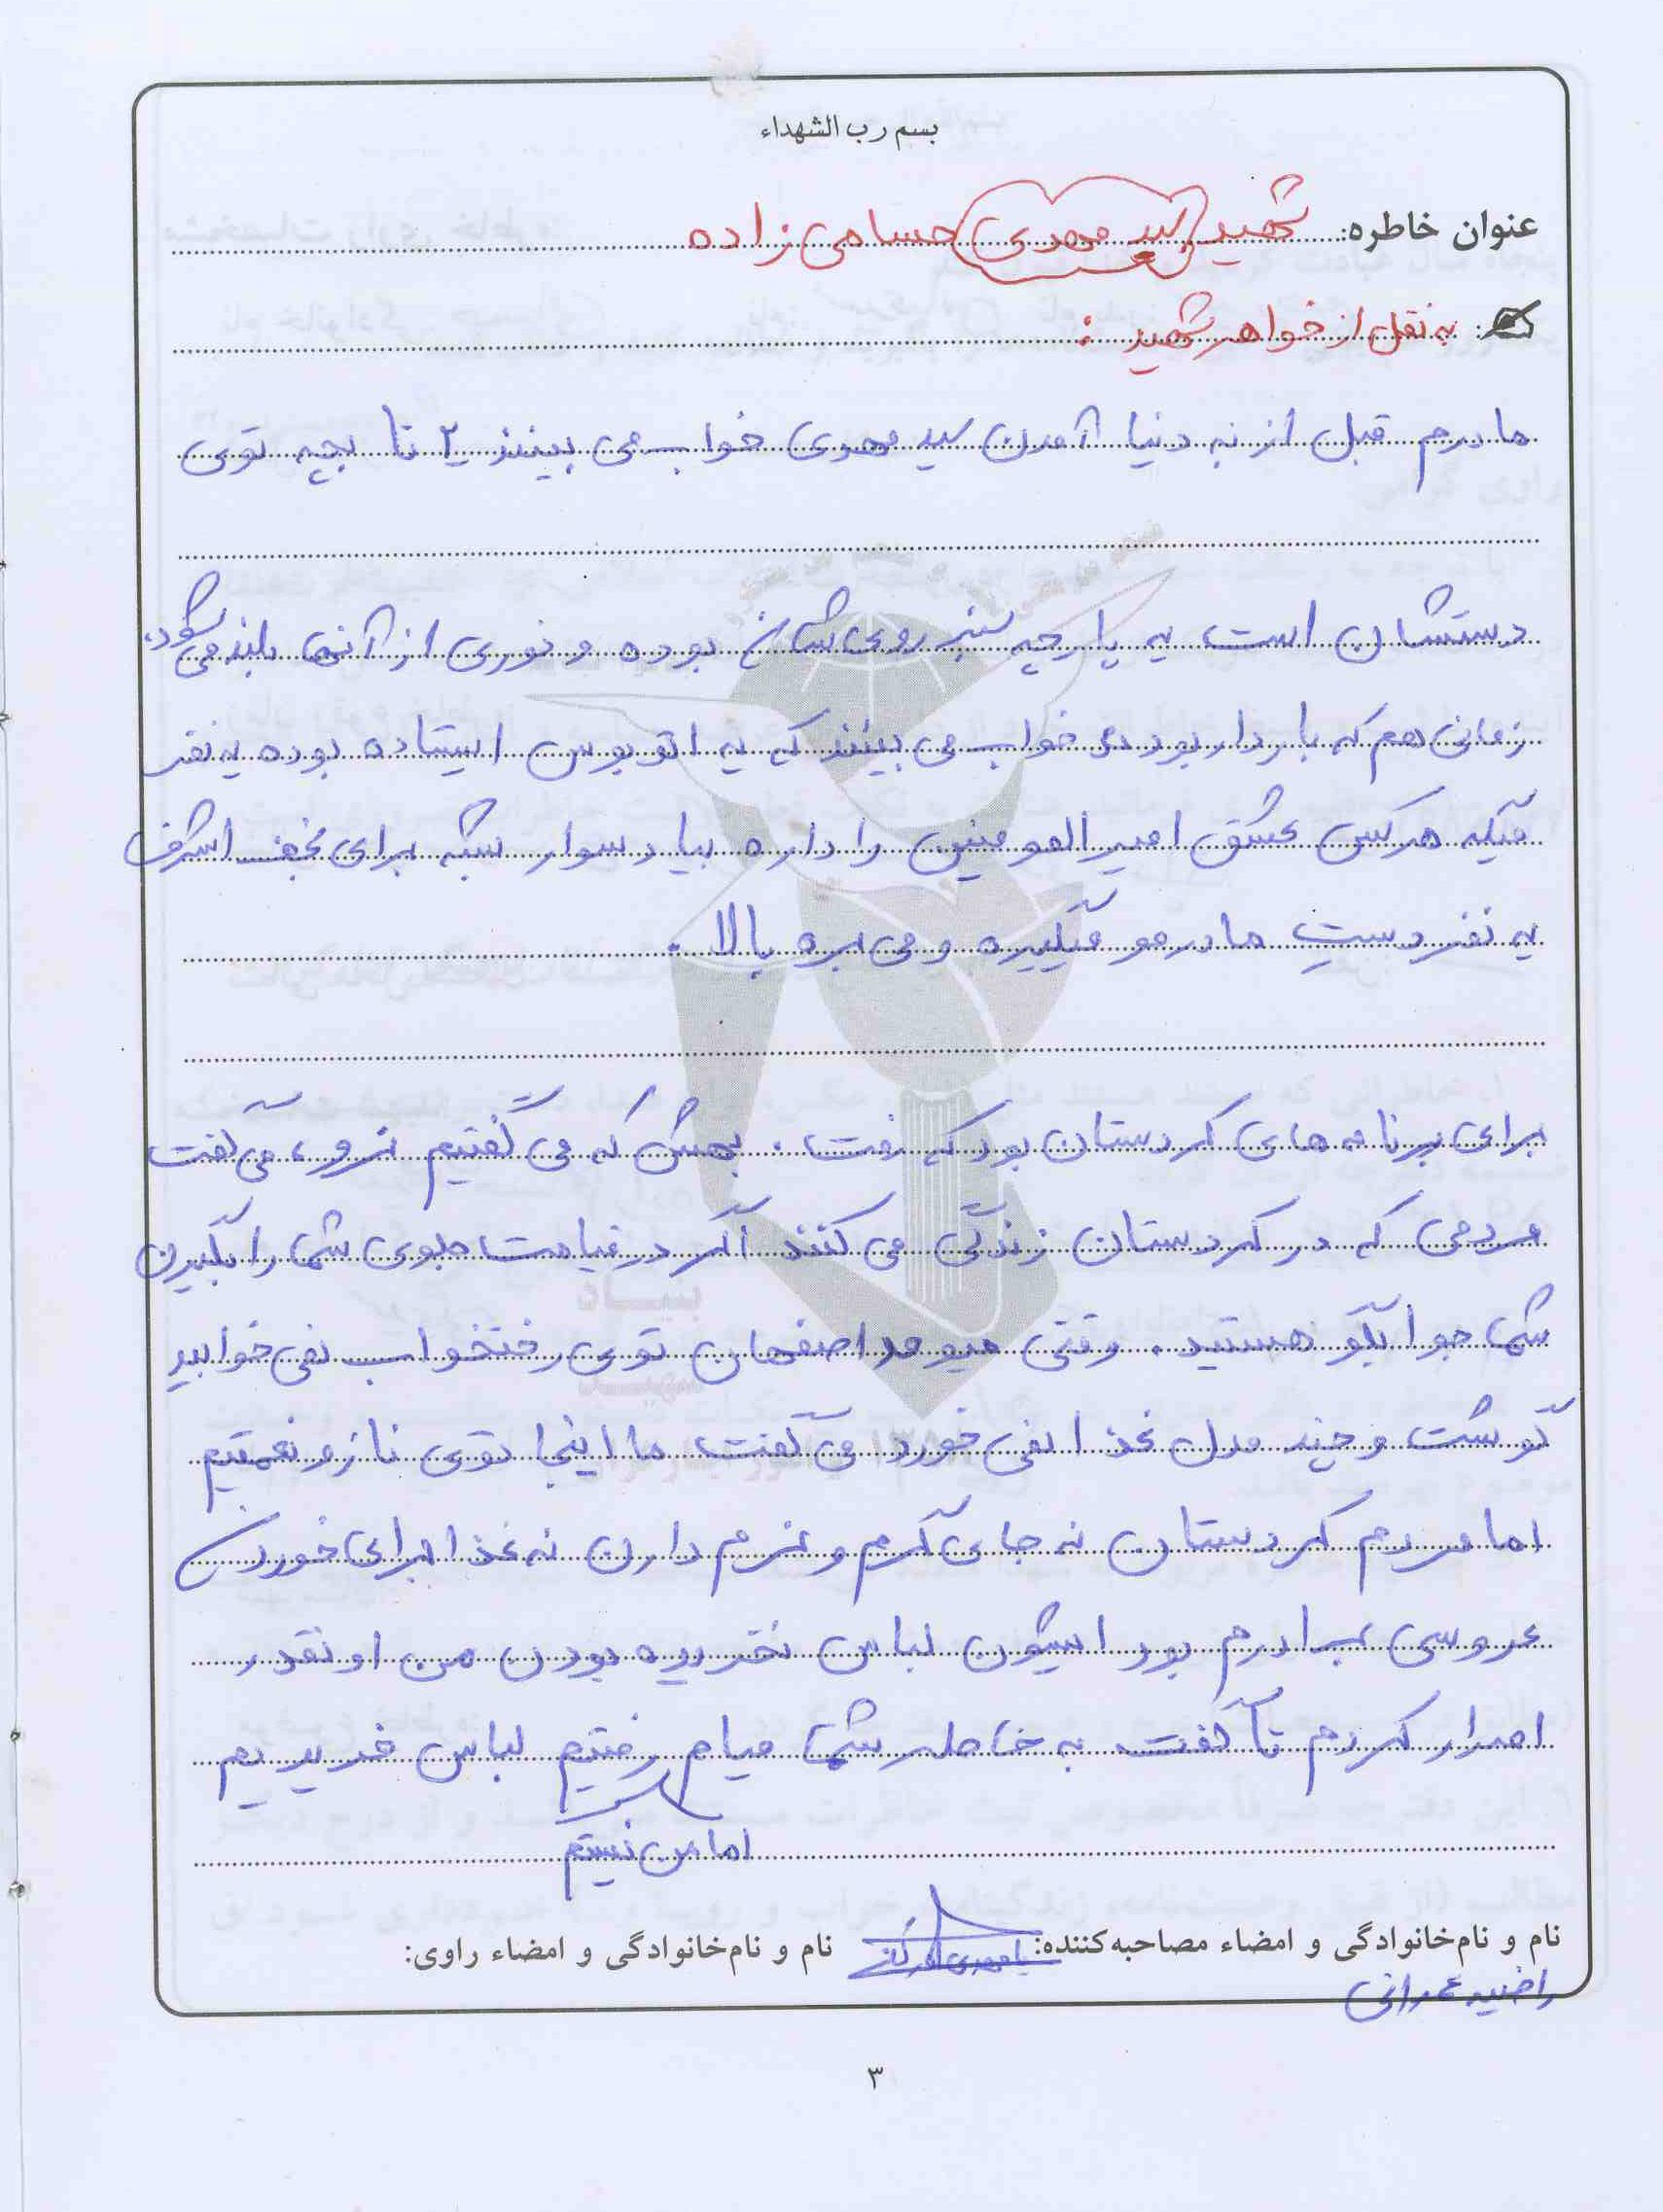 بسم رب الشهداء
عنوان خاطره: شهید سید مهدی حسامی زاده
به نقل از خواهر شهید :
مادرم قبل از به دنیا آمدن سید مهدی خواب می بینند ۲ تا بچه توی
دستشان است یه پارچه سبز روی شان بوده و نوری از آنها بلند می شود،
زمانی هم که باردار بودند خواب می بینند که یه اتوبوس ایستاده بوده یه نفر
میگه هرکس عشق امیرالمومنین را داره بیاد سوار بشه برای نجف اشرف
یه نفر دستِ مادرمو میگیره و می بره بالا .
برای برنامه های کردستان بود که رفت . بهش که می گفتیم نرو، می گفت
مردمی که در کردستان زندگی می کنند اگر در قیامت جلوی شما را بگیرن
شما جوابگو هستید . وقتی میومد اصفهان توی رختخواب نمی خوابید
گوشت و چند مدل غذا نمی خورد می گفت ما اینجا توی ناز و نعمتیم
اما مردم کردستان نه جای گرم و نرم دارن نه غذا برای خوردن
عروسی برادرم بود ایشون لباس نخریده بودن من اونقدر
اصرار کردم تا گفت به خاطر شما میام رفتیم لباس خریدیم
اما من نیستم
نام و نام‌خانوادگی و امضاء مصاحبه‌کننده: نام و نام‌خانوادگی و امضاء راوی:
راضیه عمرانی
۳